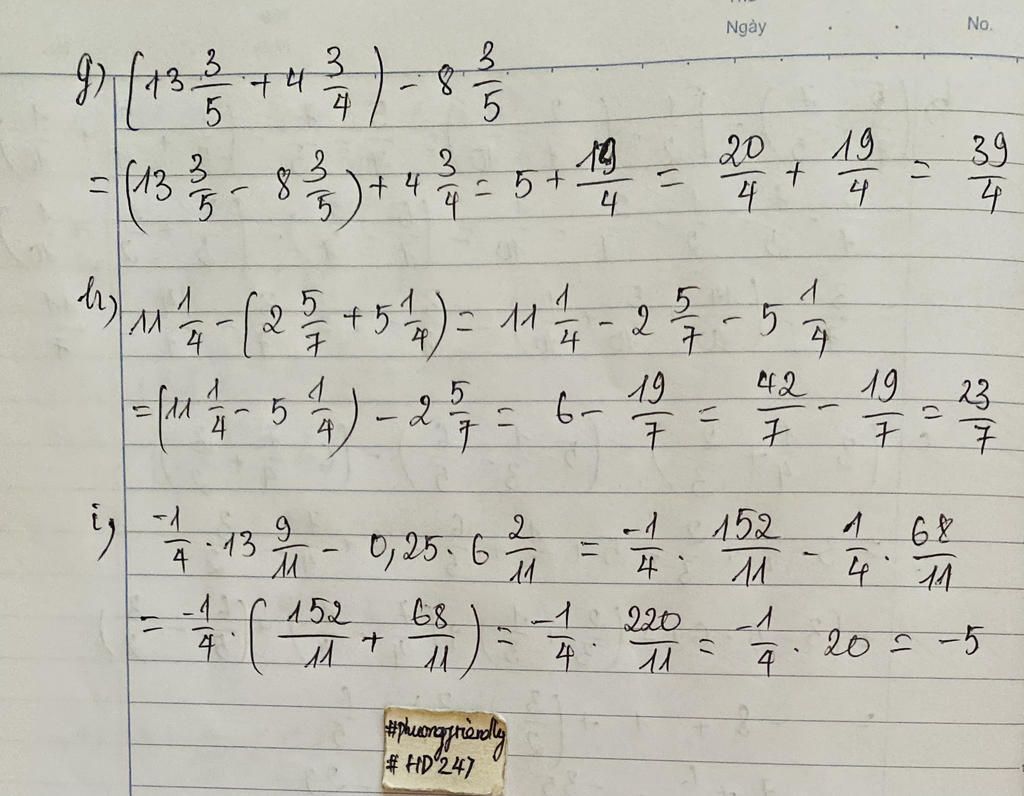 Ngày
No.
g) (13 3/5 + 4 3/4) - 8 3/5
= (13 3/5 - 8 3/5) + 4 3/4 = 5 + 19/4 = 20/4 + 19/4 = 39/4
h) 11 1/4 - (2 5/7 + 5 1/4) = 11 1/4 - 2 5/7 - 5 1/4
= (11 1/4 - 5 1/4) - 2 5/7 = 6 - 19/7 = 42/7 - 19/7 = 23/7
i) -1/4 . 13 9/11 - 0,25 . 6 2/11 = -1/4 . 152/11 - 1/4 . 68/11
= -1/4 . (152/11 + 68/11) = -1/4 . 220/11 = -1/4 . 20 = -5
#phuongfriendly
# HD 247